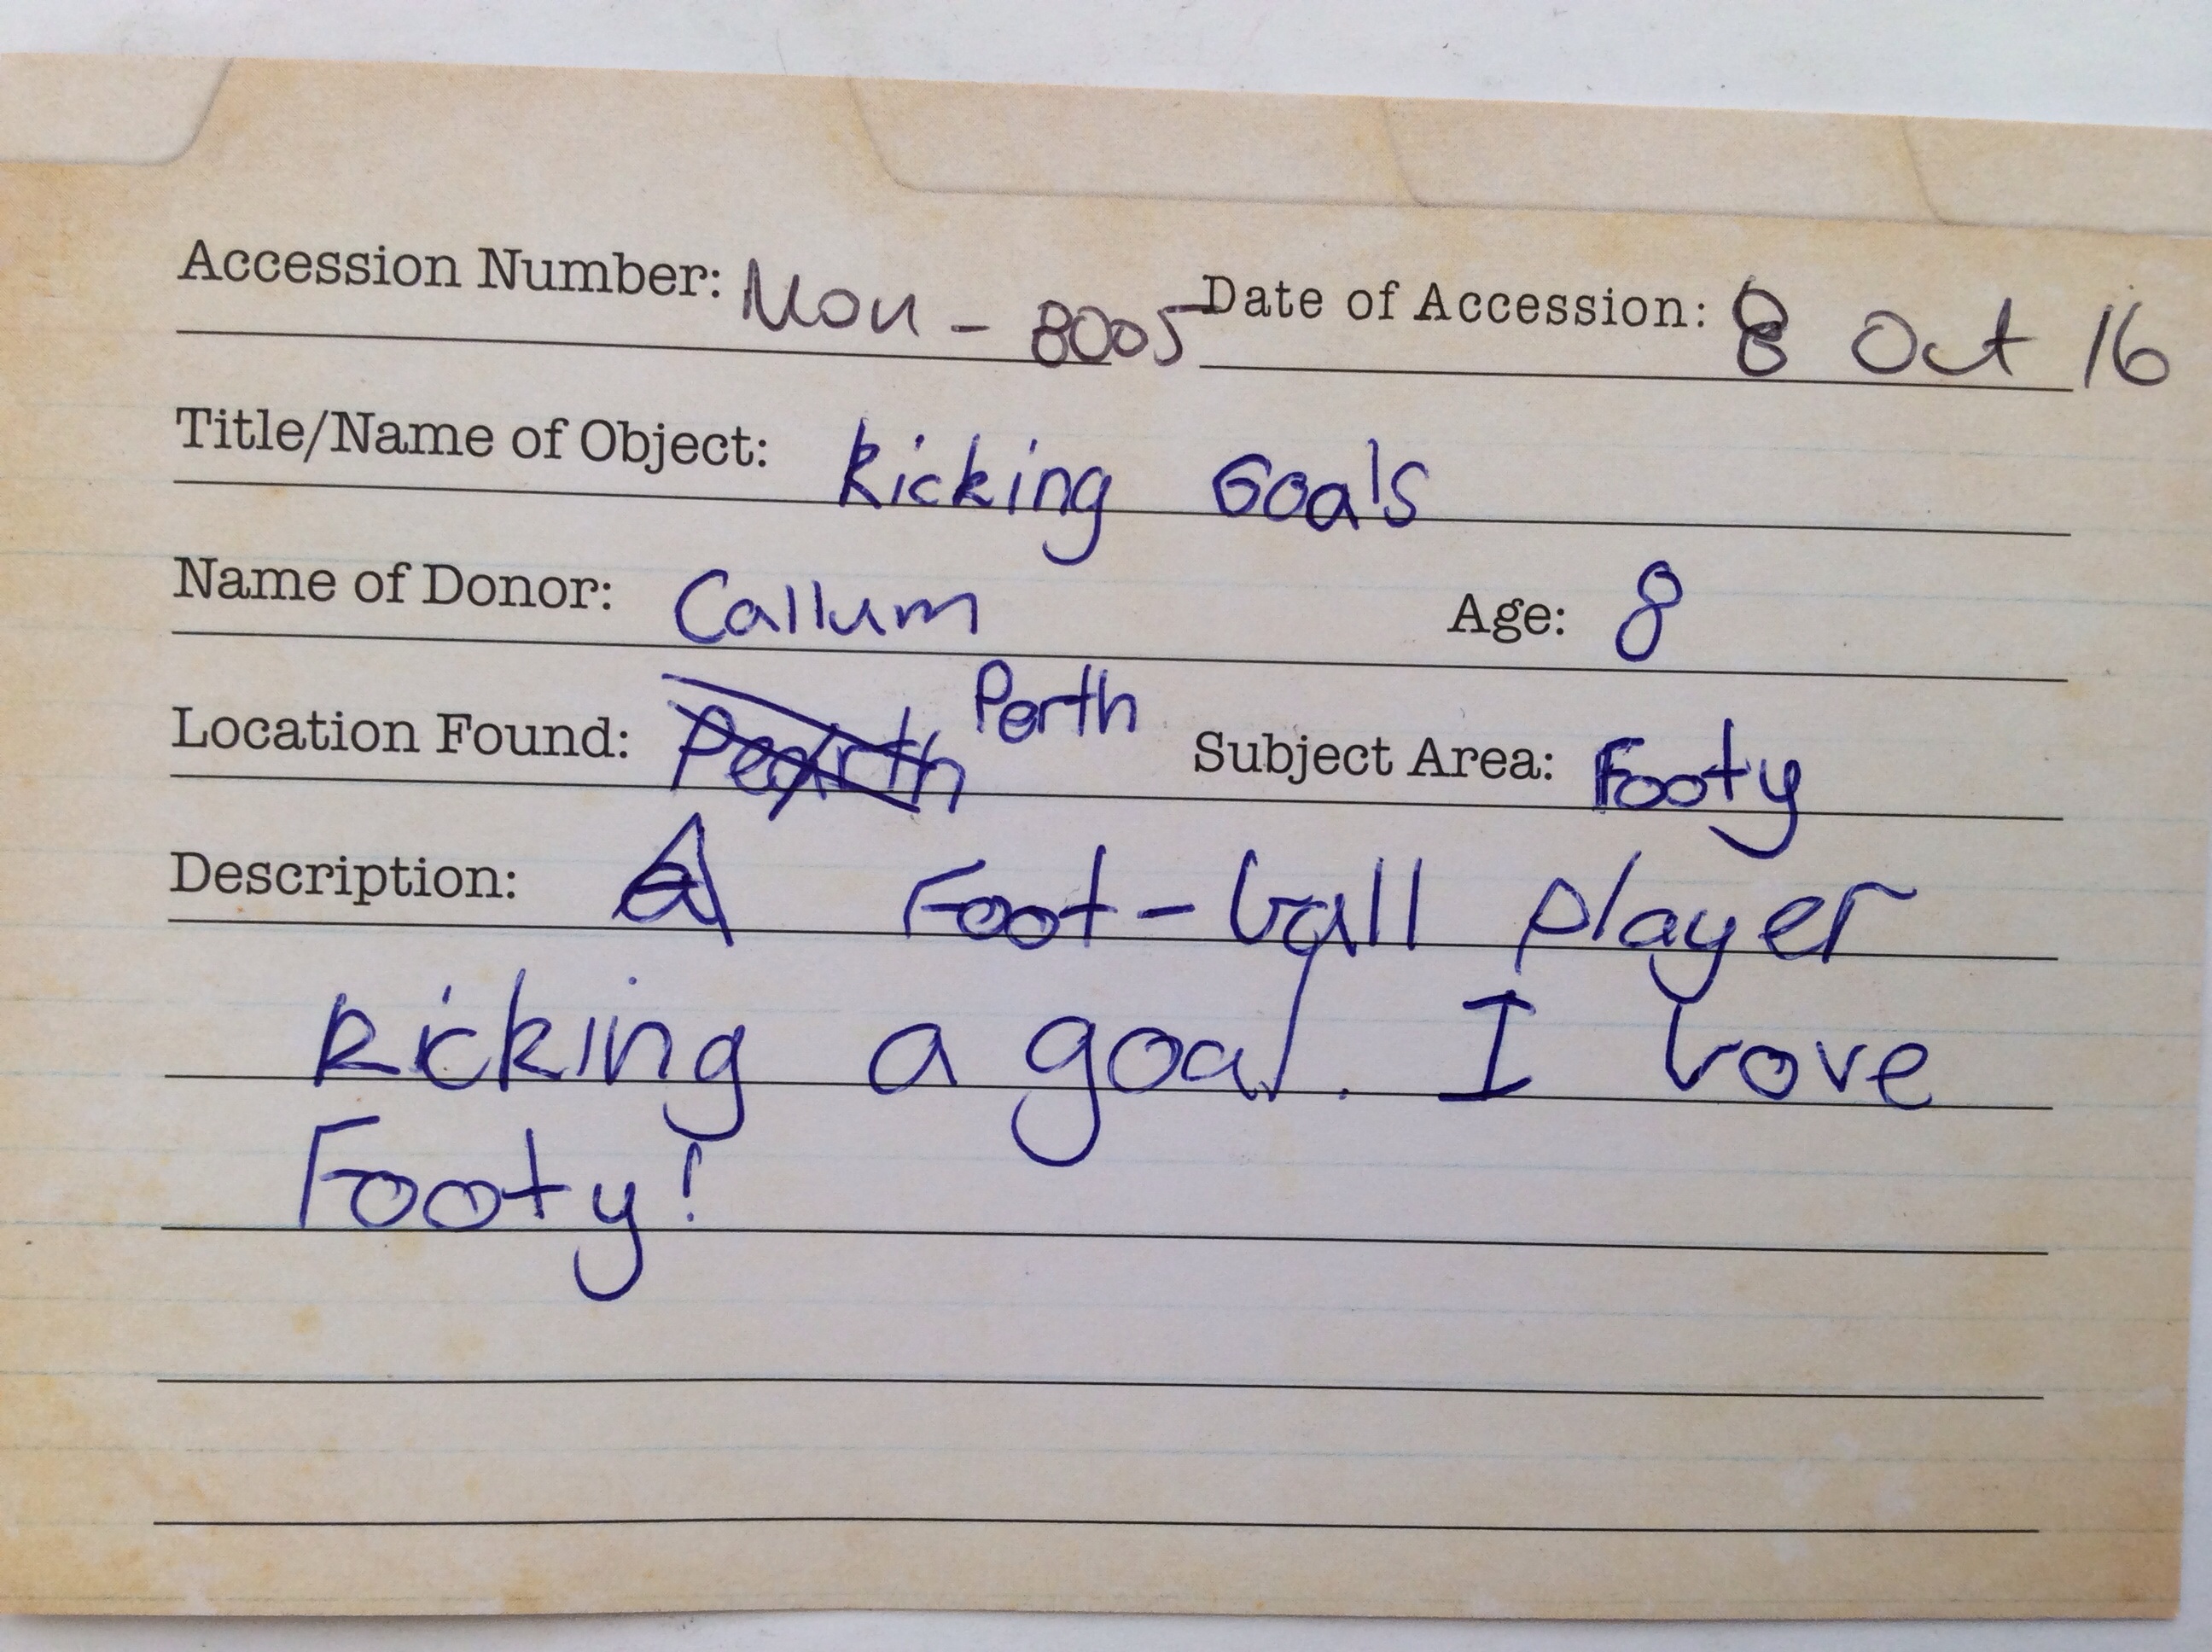 Accession Number: Mon - 8005 Date of Accession: 8 Oct 16
Title/Name of Object: Kicking Goals
Name of Donor: Callum Age: 8
Location Found: Perth Subject Area: Footy
Description: A Foot-ball player
Kicking a goal. I love
Footy!